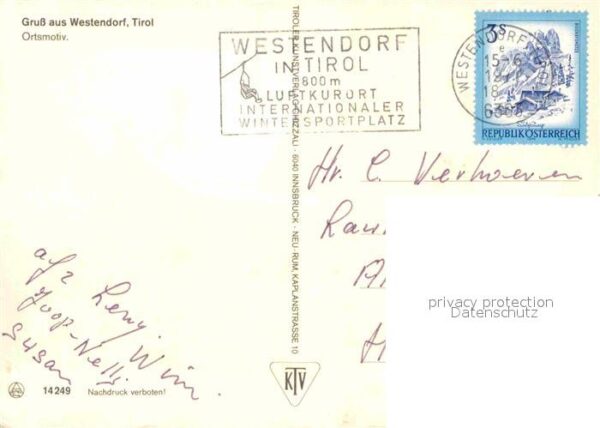 Gruß aus Westendorf, Tirol
Ortsmotiv.
WESTENDORF
IN TIROL
800m
LUFTKURORT
INTERNATIONALER
WINTERSPORTPLATZ
WESTENDORF
15-6
18
6363
3S
REPUBLIK ÖSTERREICH
TIROLER KUNSTVERLAG CHIZZALI · 6040 INNSBRUCK - NEU-RUM, KAPLANSTRASSE 10
Hr. C. Verhoeven
privacy protection
Datenschutz
afz Leny. Wim.
Joop-Nelly
Susan
14249 Nachdruck verboten!
KTV